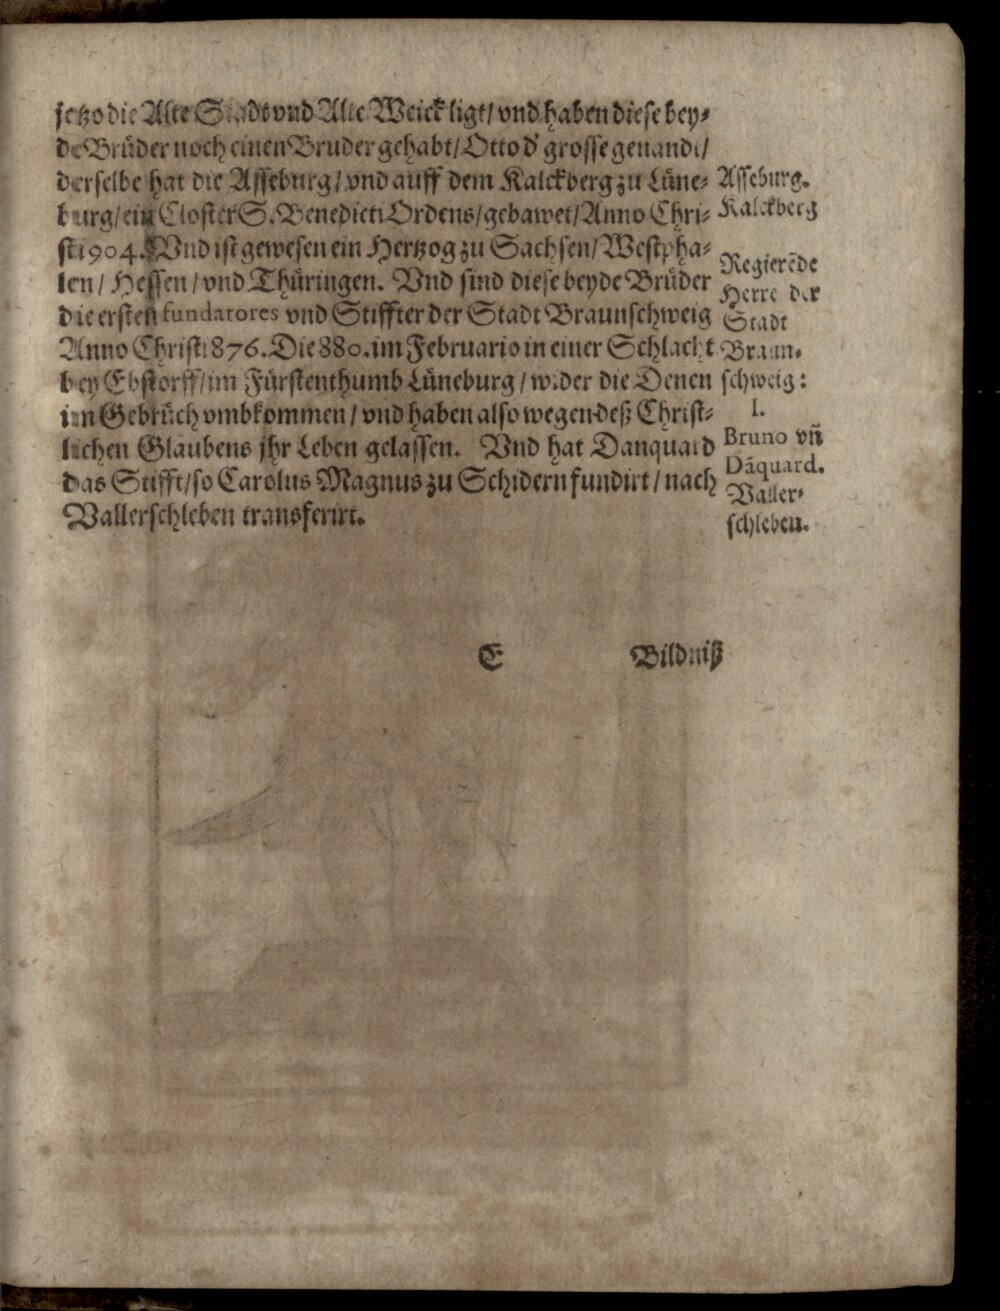 jetzo die Alte Stadt vnd Alte Weick ligt/ vnd haben diese bey⸗
de Brüder noch einen Bruder gehabt/ Otto d' grosse genandt/
derselbe hat die Asseburg/ vnd auff dem Kalckberg zu Lüne⸗
burg/ ein Closter S. Benedicti Ordens/ gebawet/ Anno Chri⸗
sti 904. Vnd ist gewesen ein Hertzog zu Sachsen/ Westpha⸗
len/ Hessen/ vnd Thüringen. Vnd sind diese beyde Brüder
die ersten fundatores vnd Stiffter der Stadt Braunschweig
Anno Christi 876. Die 880. im Februario in einer Schlacht
bey Ebstorff/ im Fürstenthumb Lüneburg/ wider die Denen
im Gebrüch vmbkommen/ vnd haben also wegen deß Christ⸗
lichen Glaubens jhr Leben gelassen. Vnd hat Danquard
das Stifft/ so Carolus Magnus zu Schidern fundirt/ nach
Vallerschleben transferirt.
Asseburg.
Kalckberg
Regierẽde
Herrẽ der
Stadt
Braun⸗
schweig:
I.
Bruno vñ
Dãquard.
Valler⸗
schleben.
E Bildniß